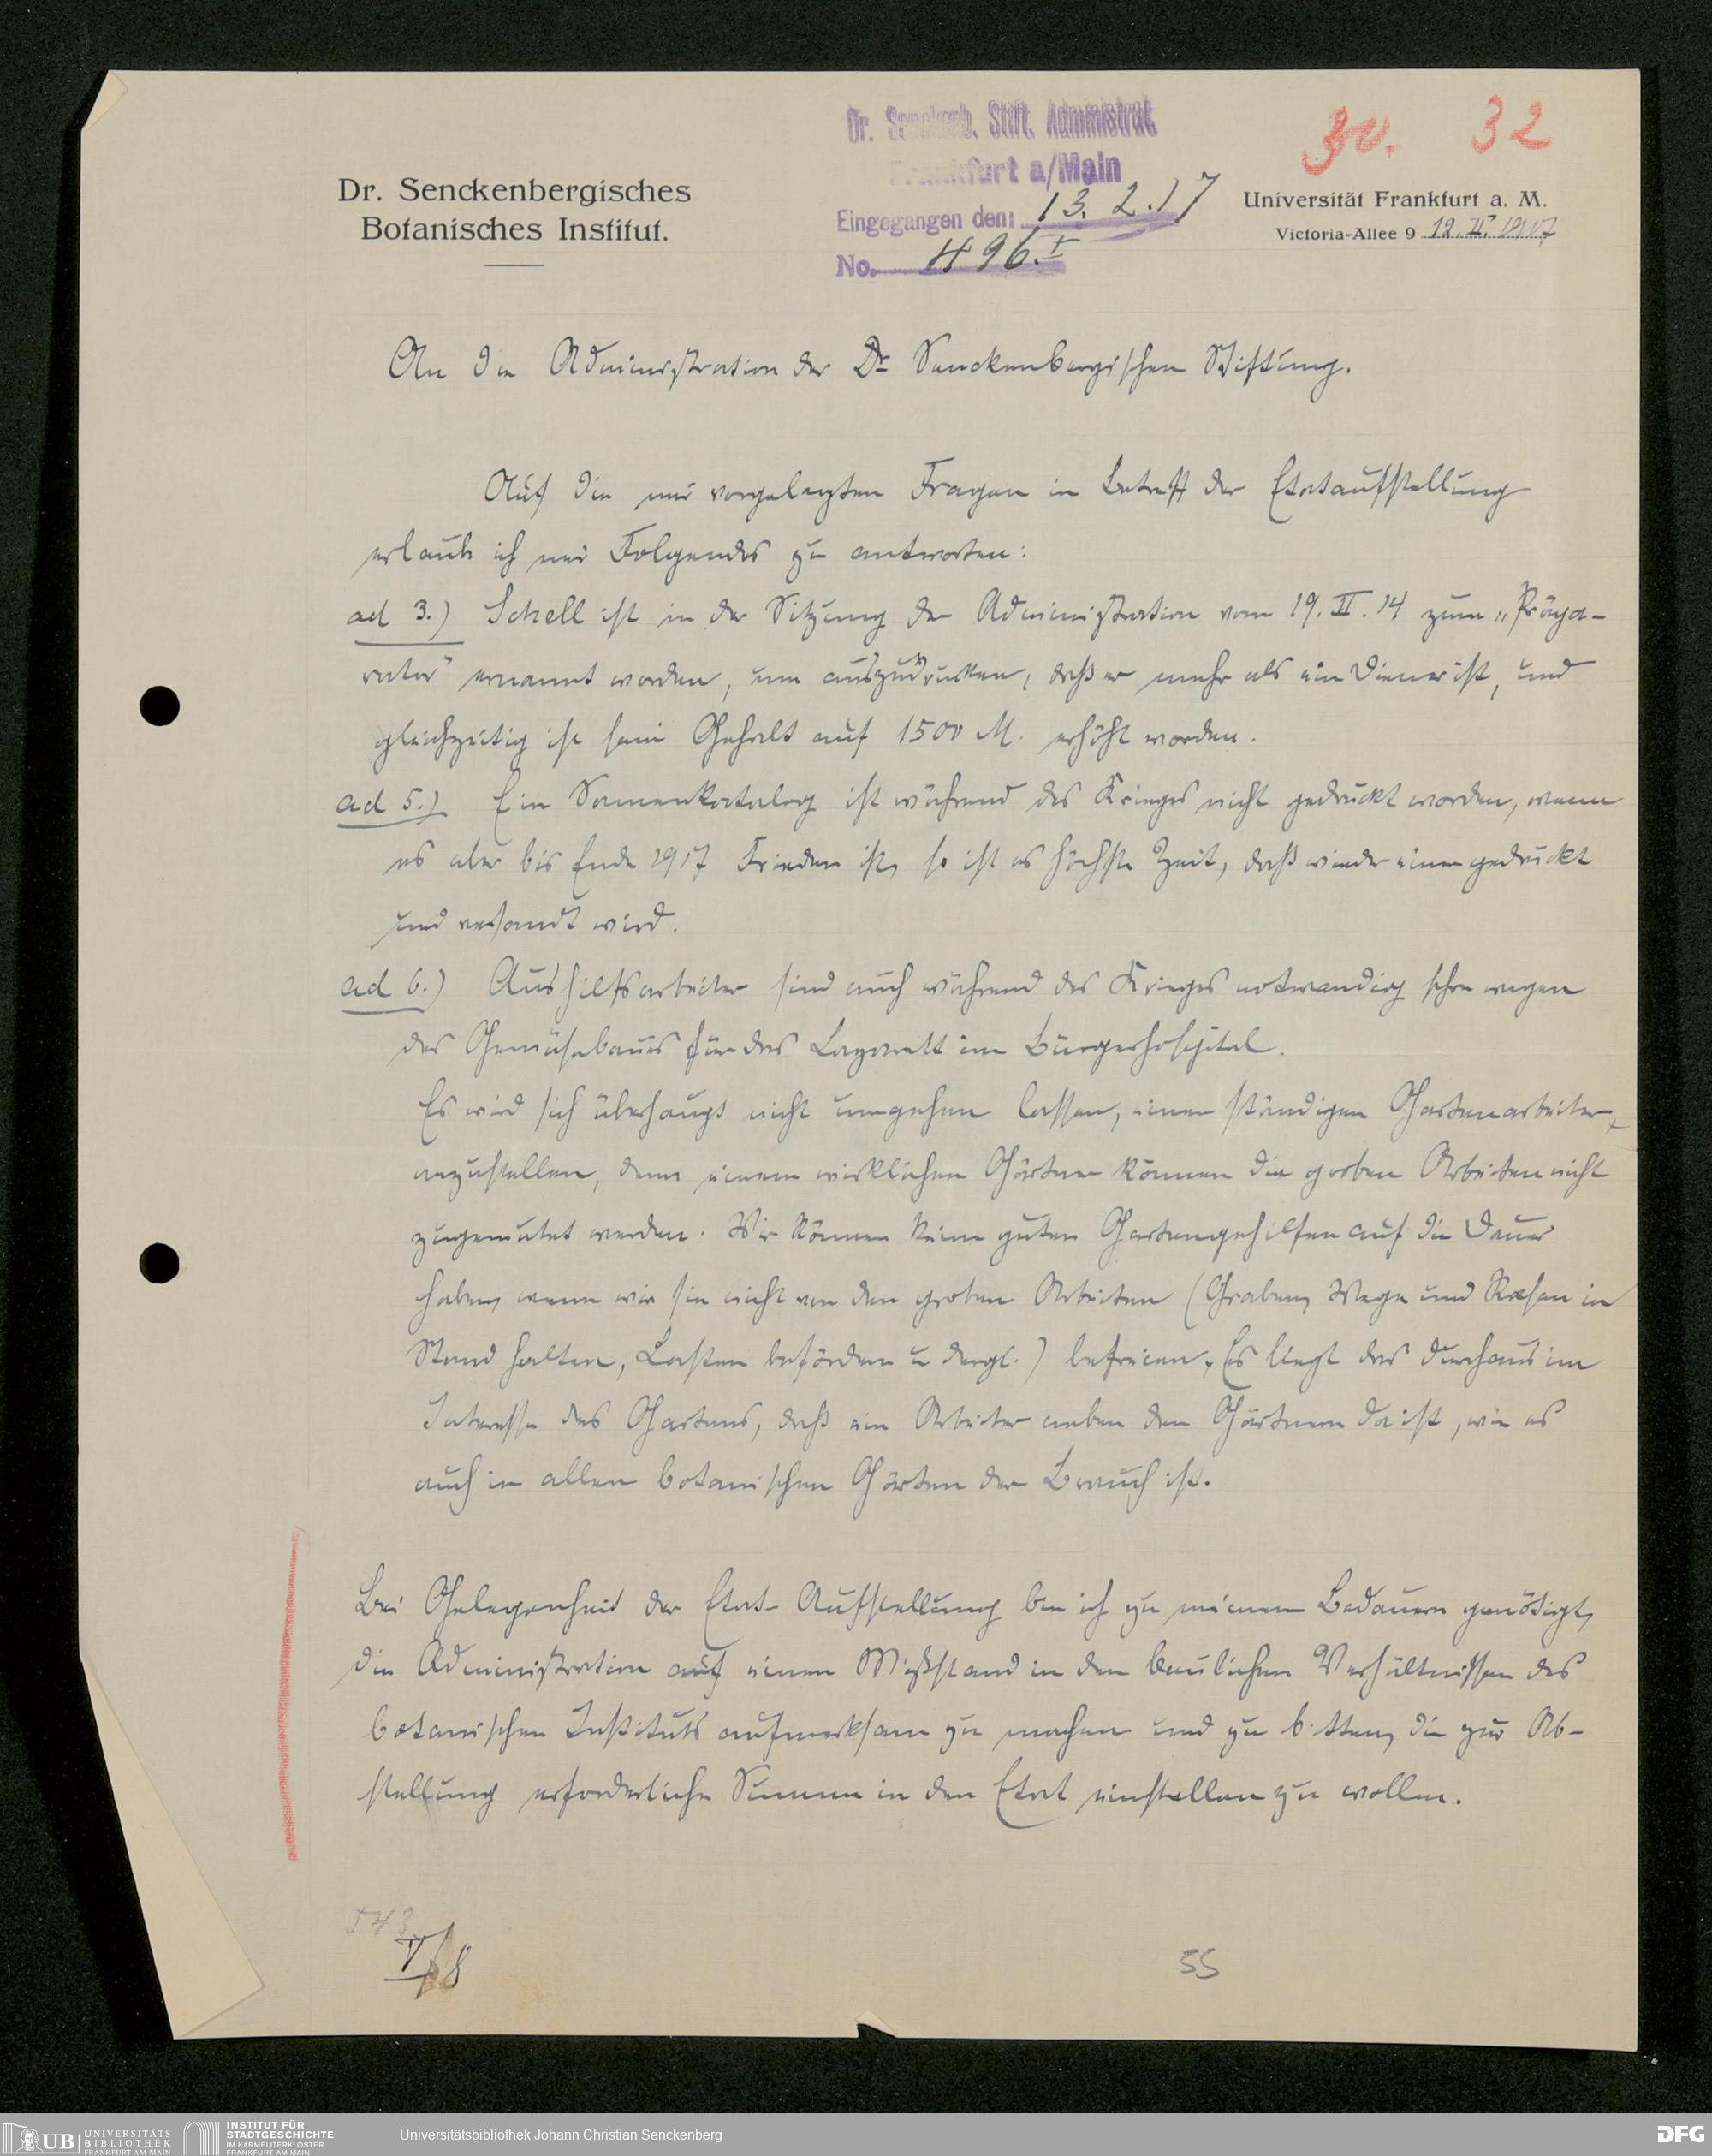 Dr. Senckenb. Stift. Administrat.
Frankfurt a/Main
Eingegangen den: 13. 2. 17
No. 496. I
32
Dr. Senckenbergisches
Botanisches Institut.
Universität Frankfurt a. M.
Victoria-Allee 9 12. II. 1917
An die Administration der Dr Senckenbergischen Stiftung.
Auf die mir vorgelegten Fragen in Betreff der Etataufstellung
erlaube ich mir Folgendes zu antworten:
ad 3.) Schell ist in der Sitzung der Administration vom 19. II. 14 zum „Präpa-
rator" ernannt worden, um auszudrücken, daß er mehr als ein Diener ist, und
gleichzeitig ist sein Gehalt auf 1500 M. erhöht worden.
ad 5.) Ein Samenkatalog ist während des Krieges nicht gedruckt worden, wenn
es aber bis Ende 1917 Frieden ist, so ist es höchste Zeit, daß wieder einer gedruckt
und versandt wird.
ad 6.) Aushilfsarbeiter sind auch während des Krieges notwendig schon wegen
des Gemüsebaues für das Lazarett im Bürgerhospital.
Es wird sich überhaupt nicht umgehen lassen, einen ständigen Gartenarbeiter
anzustellen, denn einem wirklichen Gärtner können die groben Arbeiten nicht
zugemutet werden. Wir können keine guten Gartengehilfen auf die Dauer
haben, wenn wir sie nicht von den groben Arbeiten (Graben, Wege und Rasen in
Stand halten, Lasten befördern u dergl.) befreien. Es liegt das durchaus im
Interesse des Gartens, daß ein Arbeiter neben den Gärtnern da ist, wie es
auch in allen botanischen Gärten der Brauch ist.
Bei Gelegenheit der Etat-Aufstellung bin ich zu meinem Bedauern genötigt,
die Administration auf einen Mißstand in den baulichen Verhältnissen des
botanischen Instituts aufmerksam zu machen und zu bitten, die zur Ab-
stellung erforderliche Summe in den Etat einstellen zu wollen.
55
UB UNIVERSITÄTS
BIBLIOTHEK
FRANKFURT AM MAIN
INSTITUT FÜR
STADTGESCHICHTE
IM KARMELITERKLOSTER
FRANKFURT AM MAIN
Universitätsbibliothek Johann Christian Senckenberg
DFG